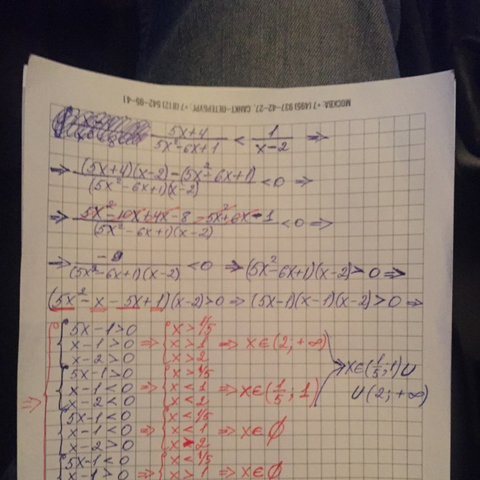 МОСКВА: +7 (495) 937-42-27, САНКТ-ПЕТЕРБУРГ: +7 (812) 542-85-41
(5x+4)/(5x²-6x+1) < 1/(x-2) ⇒
⇒ ((5x+4)(x-2)-(5x²-6x+1))/((5x²-6x+1)(x-2)) < 0 ⇒
⇒ (5x²-10x+4x-8-5x²+6x-1)/((5x²-6x+1)(x-2)) < 0 ⇒
⇒ -9/((5x²-6x+1)(x-2)) < 0 ⇒ (5x²-6x+1)(x-2) > 0 ⇒
(5x²-x-5x+1)(x-2)>0 ⇒ (5x-1)(x-1)(x-2)>0 ⇒
5x-1>0 x>1/5
x-1>0 ⇒ x>1 ⇒ x∈(2;+∞)
x-2>0 x>2
5x-1>0 x>1/5
x-1<0 ⇒ x<1 ⇒ x∈(1/5;1) ⇒ x∈(1/5;1)∪
x-2<0 x<2 ∪(2;+∞)
5x-1<0 x<1/5
x-1<0 ⇒ x<1 ⇒ x∈∅
x-2>0 x>2
5x-1<0 x<1/5
x-1>0 ⇒ x>1 ⇒ x∈∅